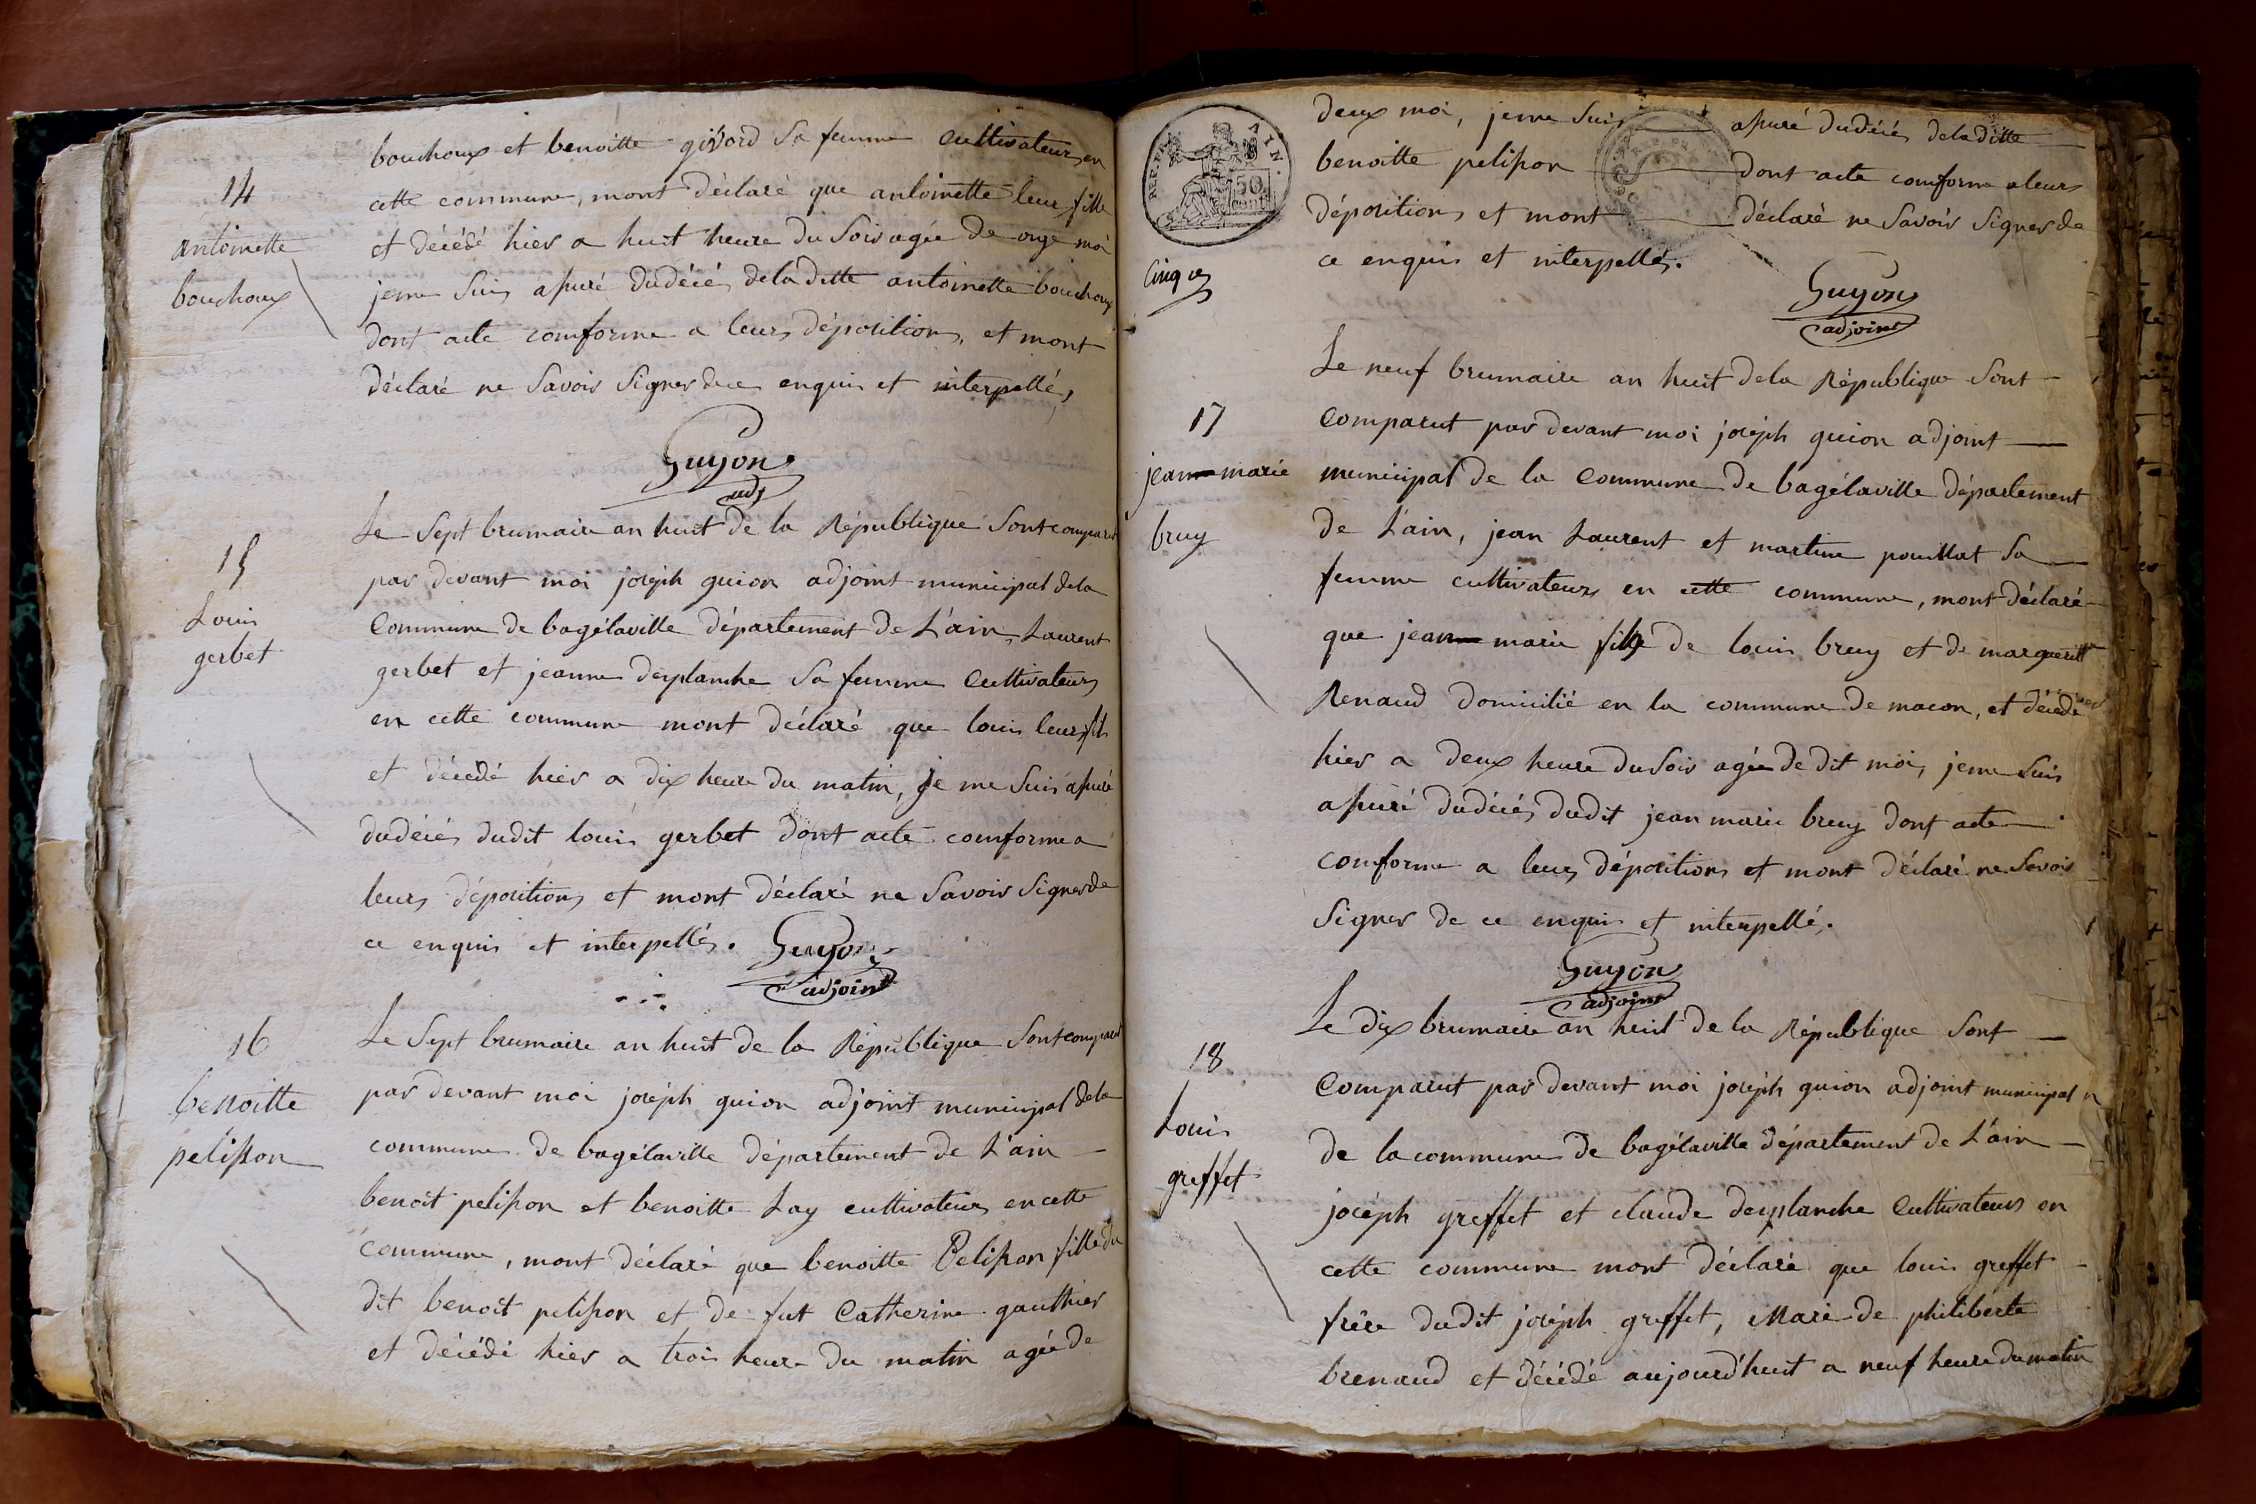 bouchoux et benoitte givord sa femme cultivateurs en
14
cette commune, mont déclaré que antoinette leur fille
antoinette
et décédé hier a huit heure du soir agée de onze moi
bouchoux
jeme suis assuré dudécés deladitte antoinette bouchoux
dont acte comforme a leurs dépositions, et mont
déclaré ne savoir signer dece enquis et interpellés
Guyon
adj
Le sept brumaire an huit de la République sont comparut
15
par devant moi joséph guion adjoint municipal dela
Louis
commune de bagélaville département de L'ain, Laurent
gerbet
gerbet et jeanne desplanche sa femme cultivateurs
en cette commune mont déclaré que louis leurs fils
et décédé hier a dix heure du matin, je me suis assuré
dudécés dudit louis gerbet dont acte comforme a
leurs dépositions et mont déclaré ne savoir signer de
ce enquis et interpellés.
Guyon
adjoint
Le sept brumaire an huit de la République sont comparut
16
par devant moi joséph guion adjoint municipal dela
benoitte
commune de bagélaville département de L'ain
pelisson
benoit pelisson et benoitte Lay cultivateurs en cette
commune, mont déclaré que benoitte Pelisson fille du
dit benoit pelisson et de fut Catherine gauthier
et décédé hier a trois heure du matin agée de
REP. FRA. AIN.
50 cent.
deux moi, jeme suis assuré dudécés deladitte
benoitte pelisson dont acte comforme a leurs
dépositions et mont déclaré ne savoir signer de
ce enquis et interpellés.
Cinq
Guyon
adjoint
Le neuf brumaire an huit dela République sont
17
comparut par devant moi joséph guion adjoint
jean marie
municipal de la commune de bagélaville département
bruy
de L'ain, jean Laurent et martine pouillat sa
femme cultivateurs en cette commune, mont déclaré
que jean marie fils de louis bruy et de margueritte
Renaud domicilié en la commune de macon, et décédé
hier a deux heure du soir agée de dit moi, jeme suis
assuré dudécés dudit jean marie bruy dont acte
comforme a leurs dépositions et mont déclaré ne savoir
signer de ce enquis et interpellé.
Guyon
adjoint
Le dix brumaire an huit de la République sont
18
comparut par devant moi joséph guion adjoint municipal
Louis
de la commune de bagélaville département de L'ain
greffet
joséph greffet et claude desplanche cultivateurs en
cette commune mont déclaré que louis greffet
frère dudit joséph greffet, Mari de philiberte
brenaud et décédé aujourd'huit a neuf heure du matin